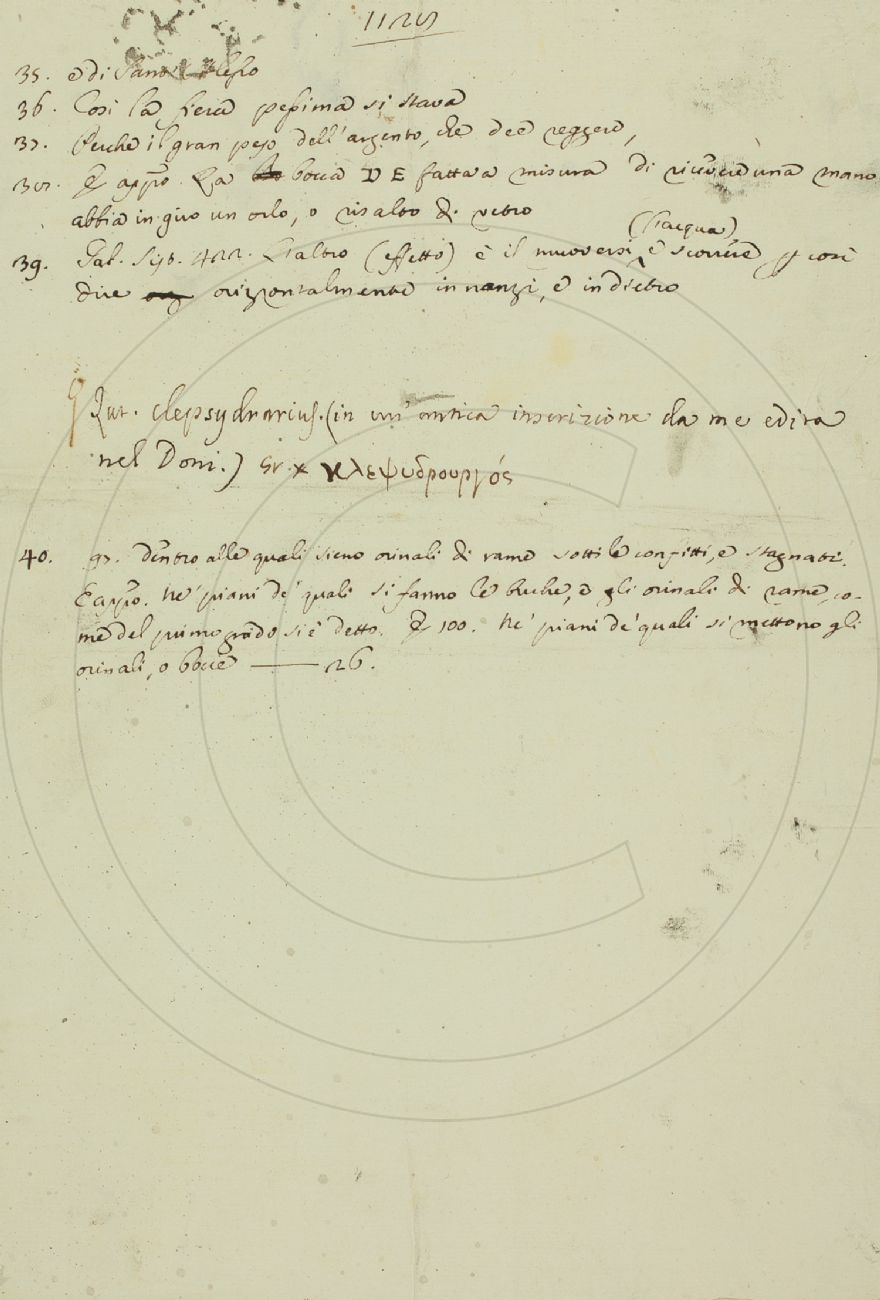 35. e di
36. Così la fiera pessima si stava
37. Perche il gran peso dell'argento, che dee reggere,
E appo. La bocca DE fatta a misura di una mano
abbia in giro un orlo, o risalto di vetro
(l'acqua)
39. Gal. Sist. 422. L'altro (effetto) è il muoversi, e scorrere p così
dire orizzontalmente innanzi, e indietro
clepsydrarius. (in un'antica inscrizione da me edita
nel Doni.) Gr. κλεψυδρουργός
40. 97. Dentro alle quali sieno orinali di rame sottile confitti, e stagnati.
E appo. Ne' piani de' quali si fanno le buche, e gli orinali di rame, co-
me del primo modo si è detto. E 100. Ne' piani de' quali si mettono gli
orinali, o bocce —— 26.